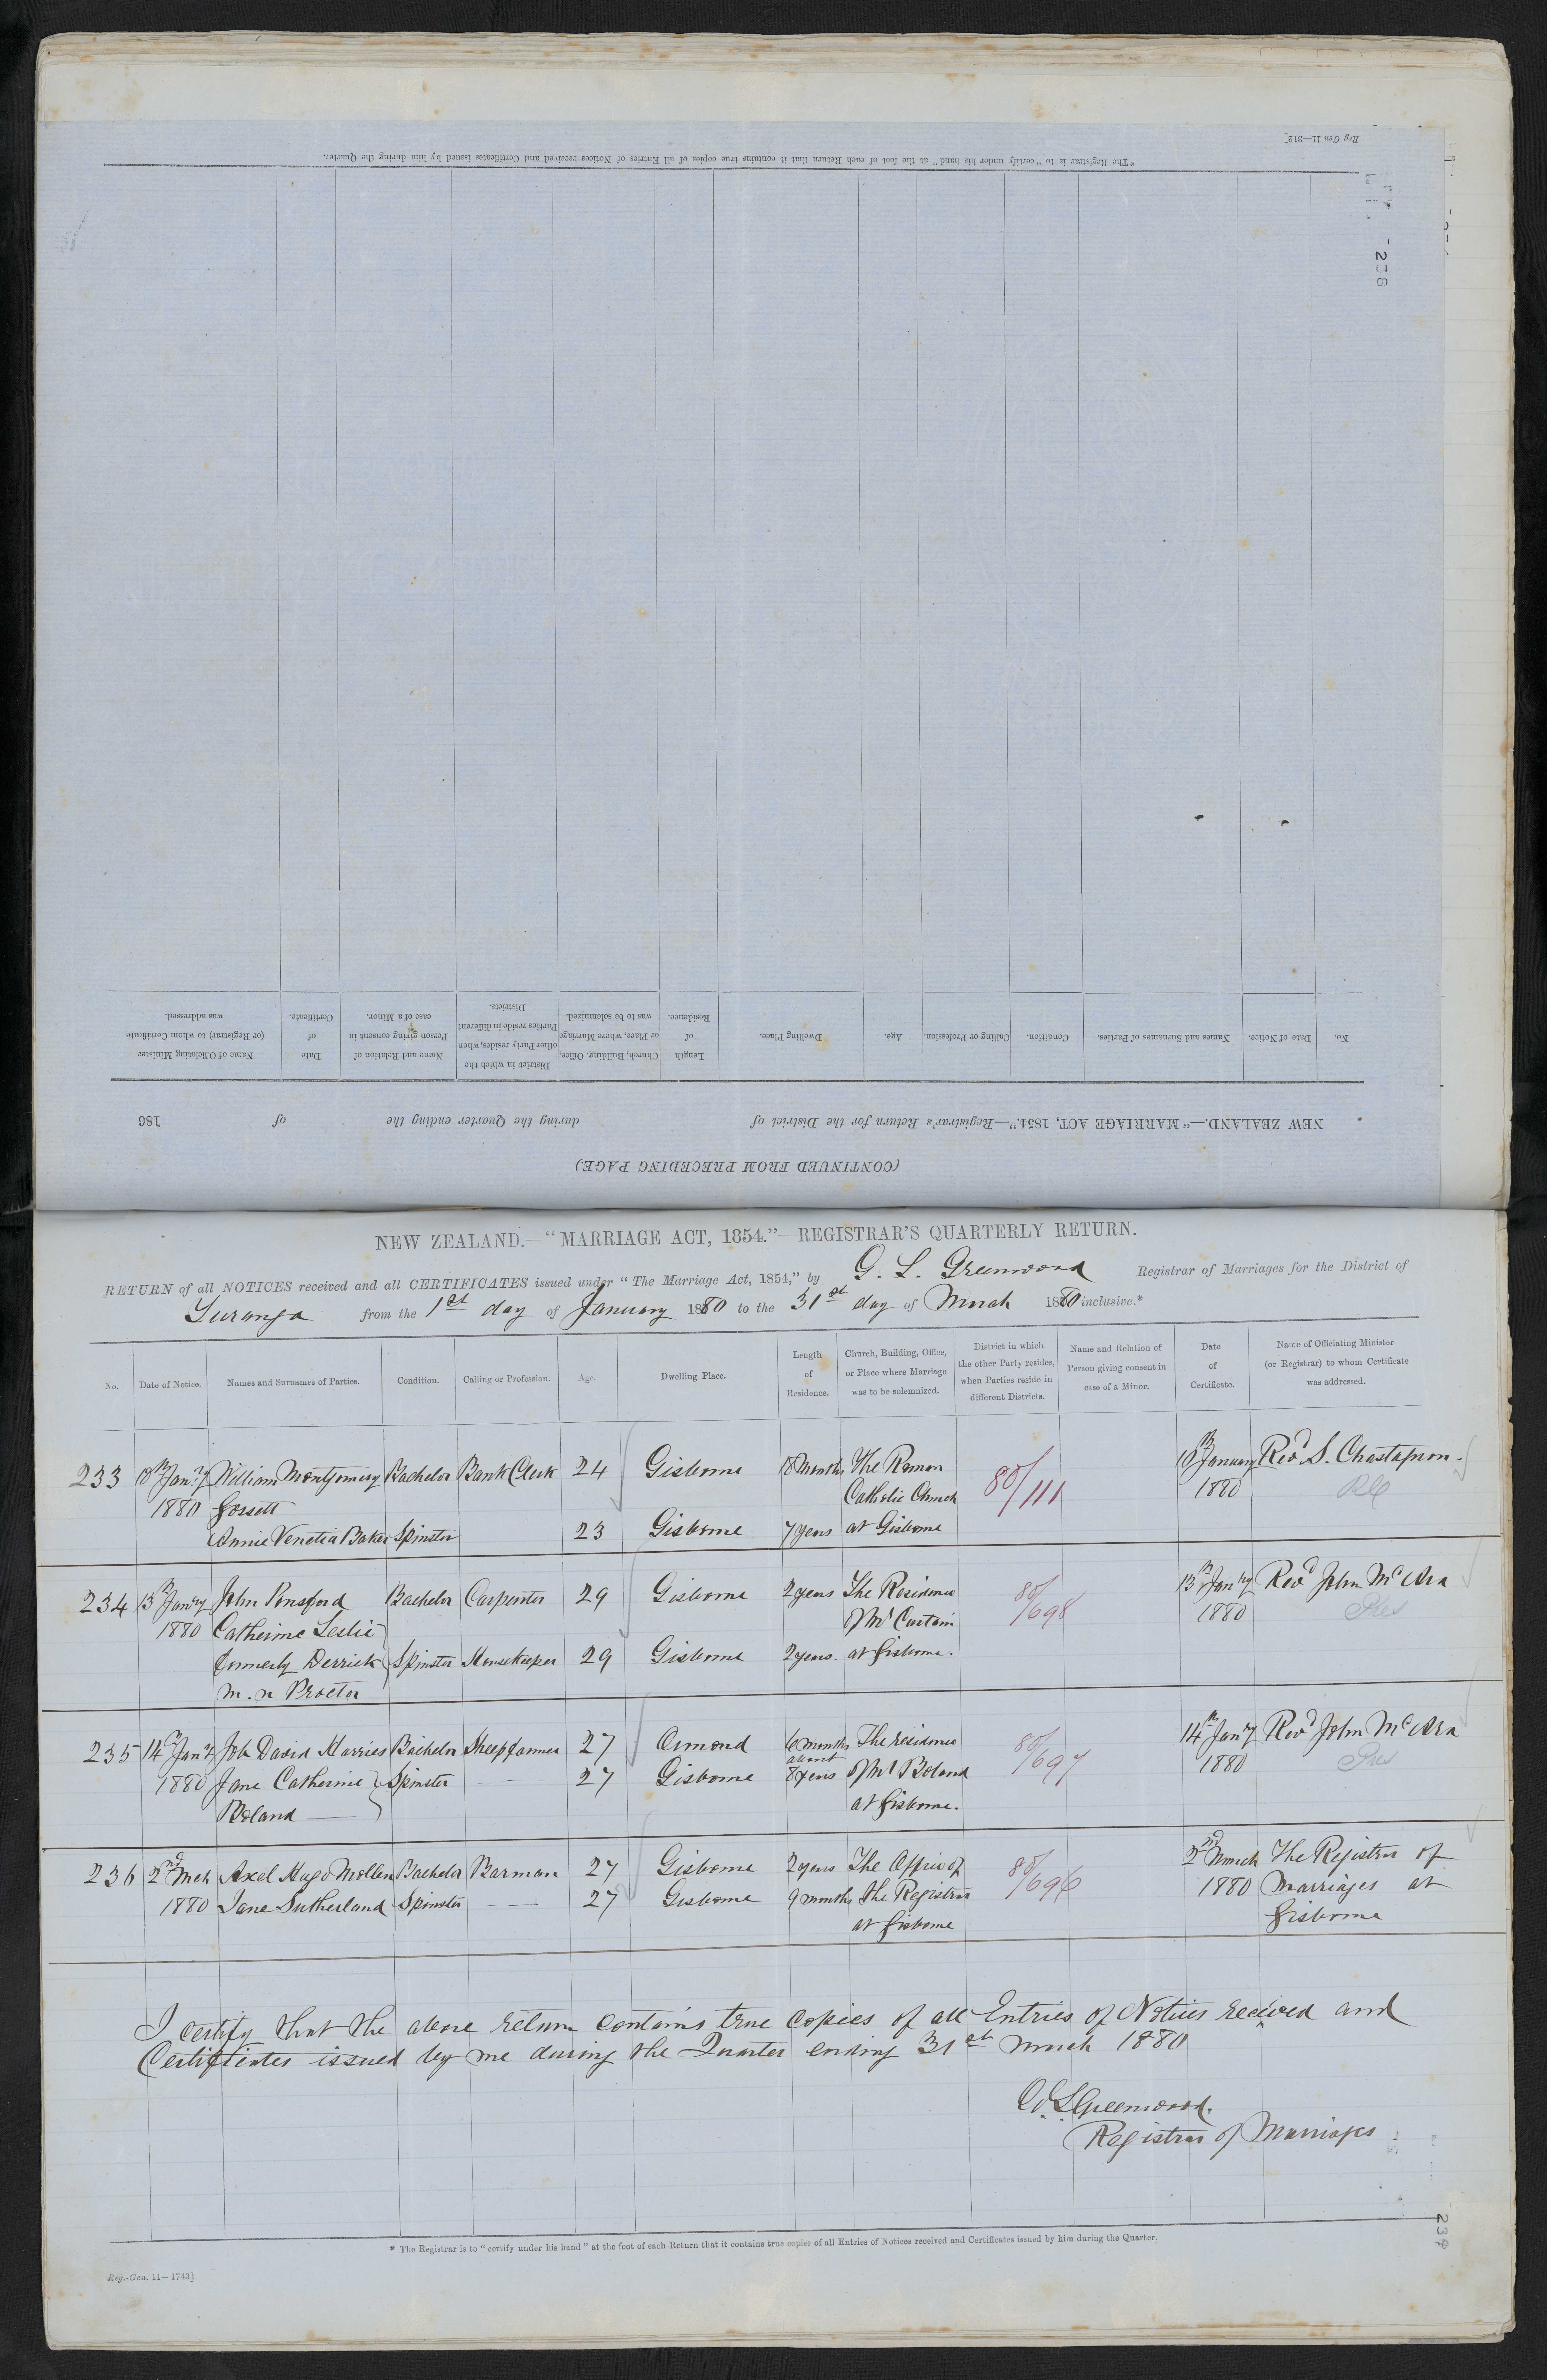 *The Registrar is to "certify under his hand" at the foot of each Return that it contains true copies of all Entries of Notices received and Certificates issued by him during the Quarter.
Reg Gen 11—312]
(CONTINUED FROM PRECEDING PAGE.)
NEW ZEALAND.—"MARRIAGE ACT, 1854."—Registrar's Return for the District of during the Quarter ending the of 186
No. Date of Notice. Names and Surnames of Parties. Condition. Calling or Profession. Age. Dwelling Place. Length of Residence. Church, Building, Office, or Place, where Marriage was to be solemnized. District in which the other Party resides, when Parties reside in different Districts. Name and Relation of Person giving consent in case of a Minor. Date of Certificate. Name of Officiating Minister (or Registrar) to whom Certificate was addressed.
NEW ZEALAND.—"MARRIAGE ACT, 1854."—REGISTRAR'S QUARTERLY RETURN.
RETURN of all NOTICES received and all CERTIFICATES issued under "The Marriage Act, 1854," by G. L. Greenwood Registrar of Marriages for the District of
Turanga from the 1st day of January 1880 to the 31st day of March 1880 inclusive.*
No. Date of Notice. Names and Surnames of Parties. Condition. Calling or Profession. Age. Dwelling Place. Length of Residence. Church, Building, Office, or Place where Marriage was to be solemnized. District in which the other Party resides, when Parties reside in different Districts. Name and Relation of Person giving consent in case of a Minor. Date of Certificate. Name of Officiating Minister (or Registrar) to whom Certificate was addressed.
233 Jany William Montgomery Bachelor Bank Clerk 24 Gisborne 18 Months The Roman 80/111 January Revd S. Chastagnon.
1880 Fossett Catholic Church 1880 RC
Annie Venetia Baker Spinster 23 Gisborne 7 years at Gisborne
234 13th Jany John Ponsford Bachelor Carpenter 29 Gisborne 2 years The Residence 80/698 13th Jany Revd John McAra
1880 Catherine Leslie of Mr Curtain 1880 Pres
formerly Derrick Spinster Housekeeper 29 Gisborne 2 years. at Gisborne.
m.n Proctor
235 14th Jany Job David Harries Bachelor Sheepfarmer 27 Ormond 6 months The residence 80/697 14th Jany Revd John McAra
1880 Jane Catherine Spinster — 27 Gisborne about 8 years of Mr Boland 1880 Pres
Boland — at Gisborne.
236 2nd Mch Axel Hugo Mollen Bachelor Barman 27 Gisborne 2 years The Office of 80/696 2nd March The Registrar of
1880 Jane Sutherland Spinster — — 27 Gisborne 9 months the Registrar 1880 Marriages at
at Gisborne Gisborne
I certify that the above return contains true copies of all Entries of Notices received and
Certificates issued by me during the Quarter ending 31st March 1880
G. L. Greenwood.
Registrar of Marriages.
* The Registrar is to "certify under his hand" at the foot of each Return that it contains true copies of all Entries of Notices received and Certificates issued by him during the Quarter.
Reg.-Gen. 11—1743]